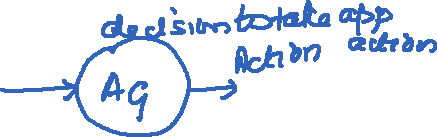 decision to take app
Action action
AG